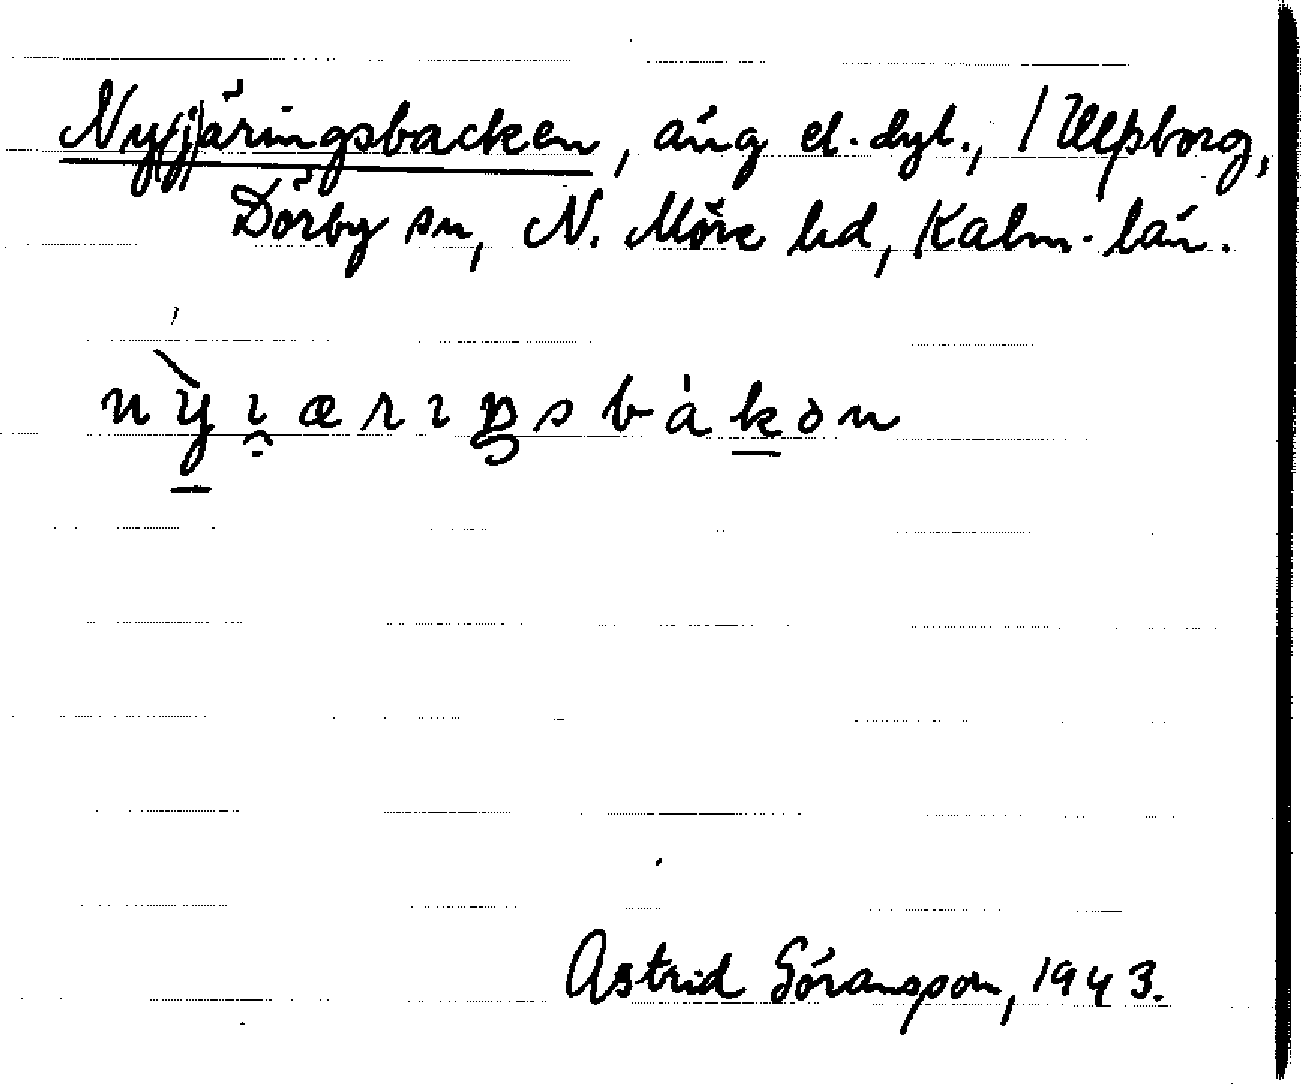 Ny(j)äringsbacken, äng el. dyl., / Ulpborg,
Dörby sn, N. Möre hd, Kalm. län.
Astrid Göransson, 1943.